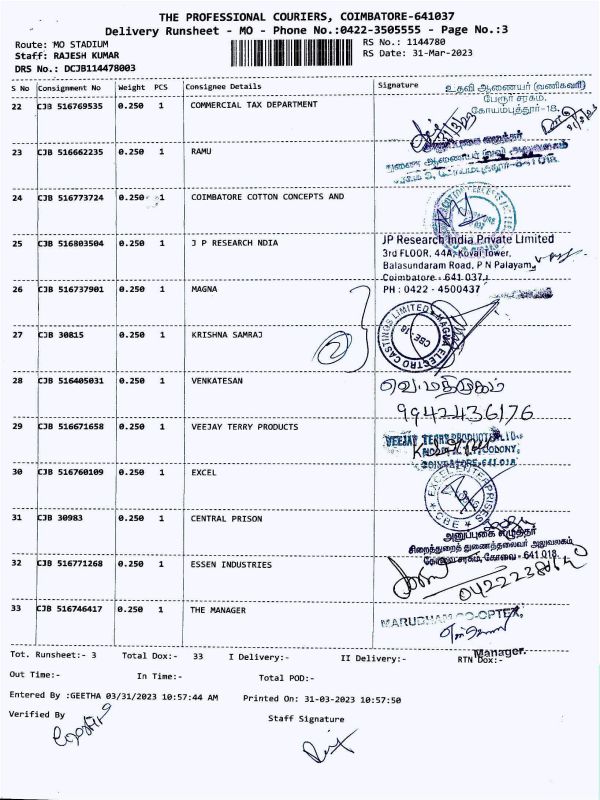 THE PROFESSIONAL COURIERS, COIMBATORE-641037
Delivery Runsheet - MO - Phone No.:0422-3505555 - Page No.:3
Route: MO STADIUM RS No.: 1144780
Staff: RAJESH KUMAR RS Date: 31-Mar-2023
DRS No.: DCJB114478003
S No Consignment No Weight PCS Consignee Details Signature
உதவி ஆணையர் (வணிகவரி)
பேரூர் சரகம்,
கோயம்புத்தூர்-18.
22 CJB 516769535 0.250 1 COMMERCIAL TAX DEPARTMENT
23 CJB 516662235 0.250 1 RAMU
24 CJB 516773724 0.250 1 COIMBATORE COTTON CONCEPTS AND
25 CJB 516803504 0.250 1 J P RESEARCH NDIA
JP Research India Private Limited
3rd FLOOR, 44A, Kovai Tower,
Balasundaram Road, P N Palayam,
Coimbatore - 641 037.
PH : 0422 - 4500437
26 CJB 516737901 0.250 1 MAGNA
MAGNA ELECTRO CASTINGS LIMITED
CBE-18
27 CJB 30815 0.250 1 KRISHNA SAMRAJ
2
28 CJB 516405031 0.250 1 VENKATESAN
9942436176
29 CJB 516671658 0.250 1 VEEJAY TERRY PRODUCTS
VEEJAY TERRY PRODUCTS LTD
COIMBATORE-641 018
30 CJB 516760109 0.250 1 EXCEL
EXCEL ENTERPRISES
CBE
31 CJB 30983 0.250 1 CENTRAL PRISON
அனுப்புகை எழுத்தர்
சிறைத்துறைத் துணைத்தலைவர் அலுவலகம்
கோவை சரகம், கோவை - 641 018.
32 CJB 516771268 0.250 1 ESSEN INDUSTRIES
33 CJB 516746417 0.250 1 THE MANAGER
MARUDHAM CO-OPTEX,
Manager.
Tot. Runsheet:- 3 Total Dox:- 33 I Delivery:- II Delivery:- RTN Dox:-
Out Time:- In Time:- Total POD:-
Entered By :GEETHA 03/31/2023 10:57:44 AM Printed On: 31-03-2023 10:57:50
Verified By Staff Signature